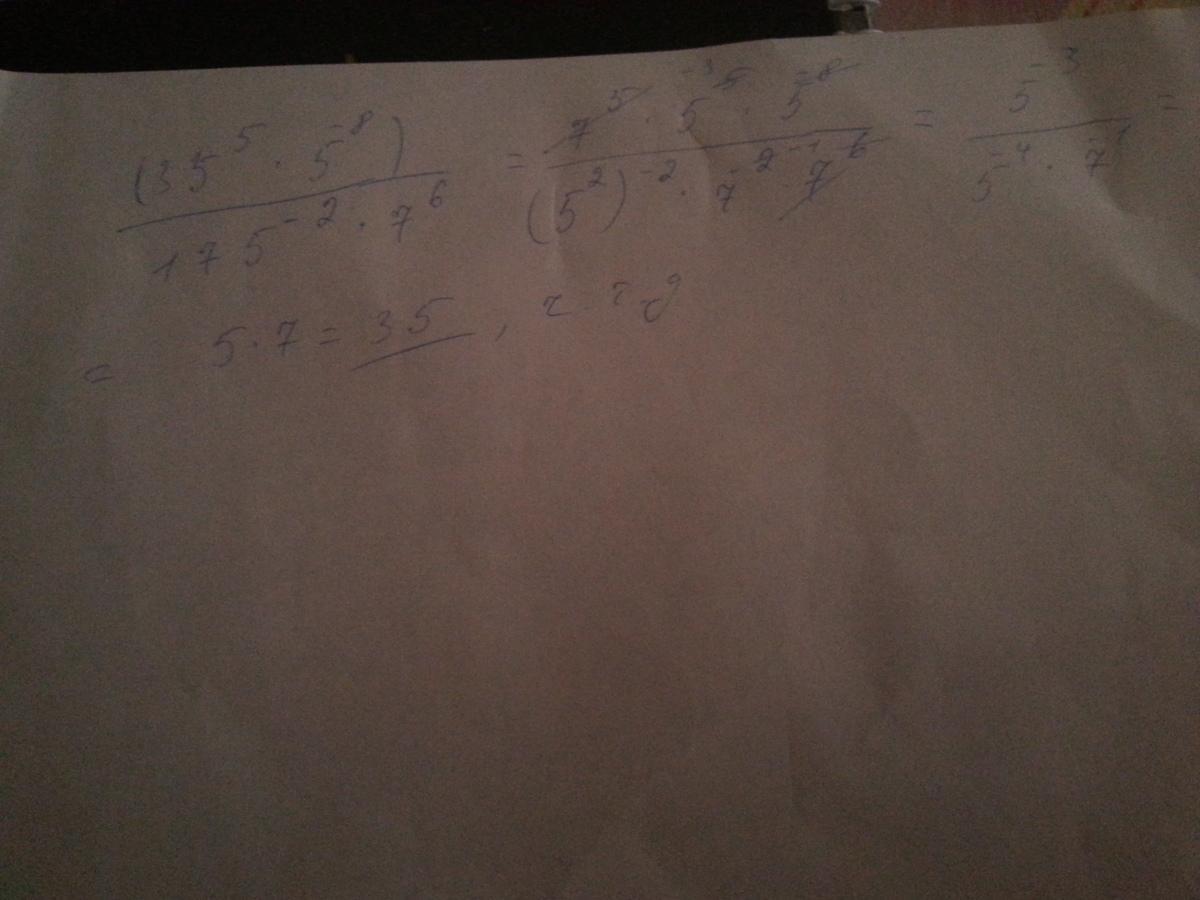 (35^5 · 5^-8) / (175^-2 · 7^6) = (7^5 · 5^5 · 5^-8) / ((5^2)^-2 · 7^-2 · 7^6) = 5^-3 / (5^-4 · 7^-1) =
= 5 · 7 = 35, ч.т.д